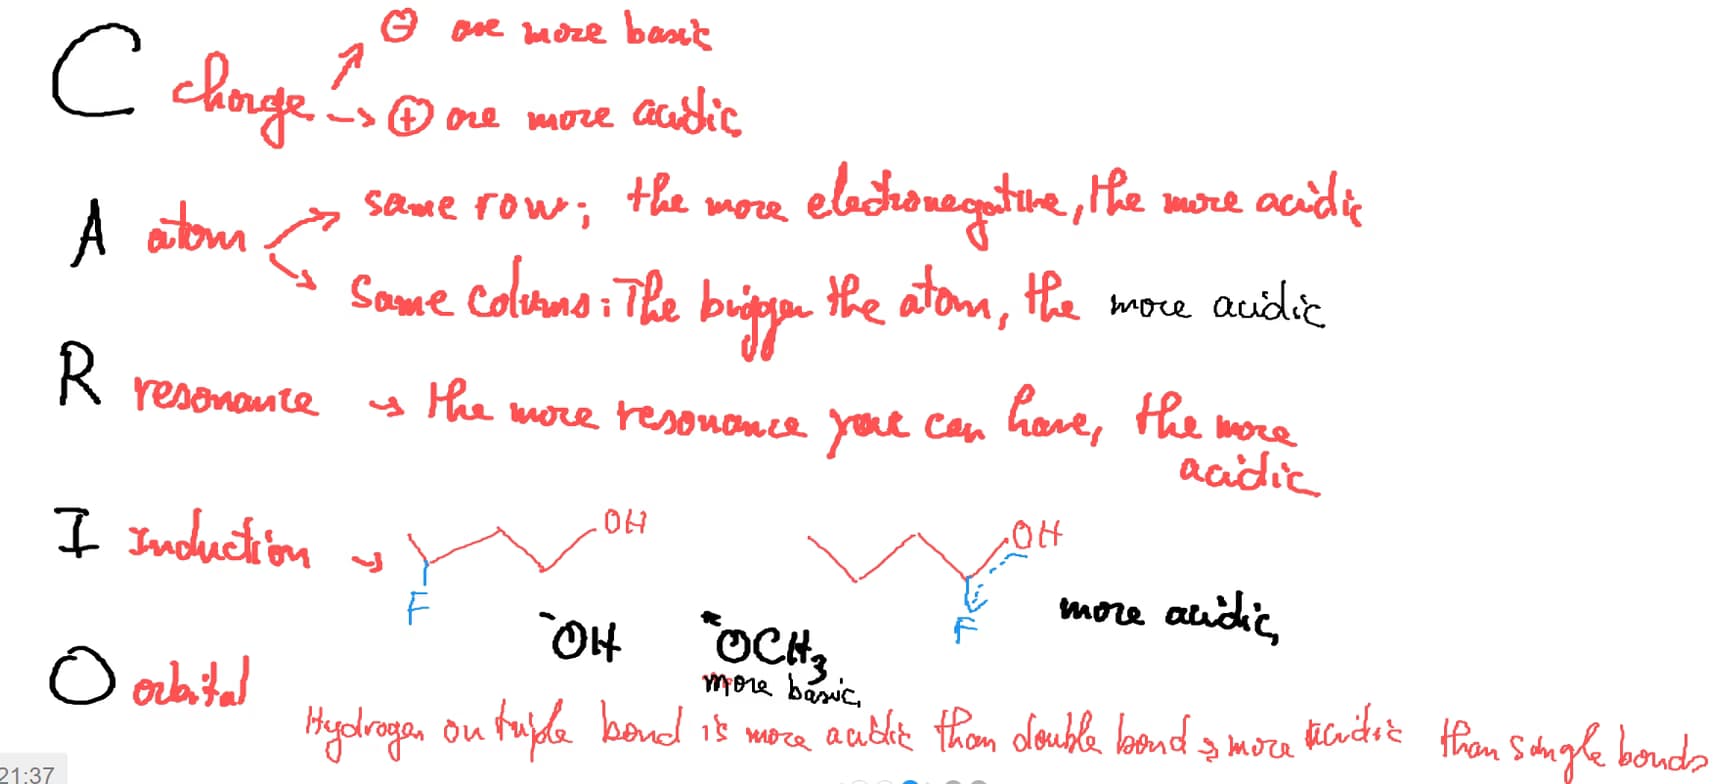 ⊖ are more basic
C charge → ⊕ are more acidic
A atom
same row; the more electronegative, the more acidic
Same colums: The bigger the atom, the more acidic
R resonance → the more resonance you can have, the more
acidic
I Induction → OH OH
F F more acidic,
⁻OH ⁻OCH3
more basic,
O orbital
Hydrogen on triple bond is more acidic than double bond > more acidic than single bonds
21:37